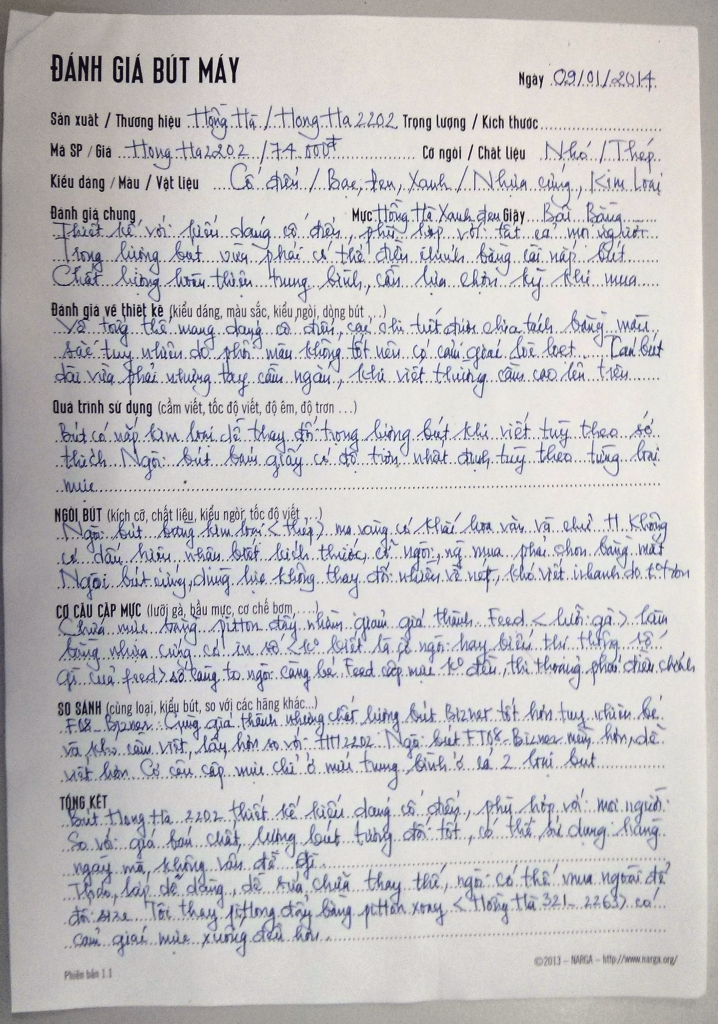 ĐÁNH GIÁ BÚT MÁY
Ngày 09/01/2014
Sản xuất / Thương hiệu Hồng Hà / Hong Ha 2202 Trọng lượng / Kích thước
Mã SP / Giá Hong Ha 2202 / 74.000đ Cỡ ngòi / Chất liệu Nhỏ / Thép
Kiểu dáng / Màu / Vật liệu Cổ điển / Bạc, Đen, Xanh / Nhựa cứng, Kim Loại
Đánh giá chung Mực Hồng Hà Xanh đen Giấy Bãi Bằng
Thiết kế với kiểu dáng cổ điển, phù hợp với tất cả mọi người
Trọng lượng bút vừa phải có thể điều chỉnh bằng cái nắp bút
Chất lượng hoàn thiện trung bình, cần lựa chọn kỹ khi mua
Đánh giá về thiết kế (kiểu dáng, màu sắc, kiểu ngòi, dòng bút ...)
Về tổng thể mang dáng cổ điển, các chi tiết được chia tách bằng màu
sắc tuy nhiên do phối màu không tốt nên có cảm giác lòe loẹt. Thân bút
dài vừa phải nhưng tay cầm ngắn, khi viết thường cầm cao lên trên
Quá trình sử dụng (cầm viết, tốc độ viết, độ êm, độ trơn ...)
Bút có nắp kim loại dễ thay đổi trọng lượng bút khi viết tuỳ theo sở
thích. Ngòi bút bám giấy có độ trơn nhất định tuỳ theo từng loại
mực
NGÒI BÚT (kích cỡ, chất liệu, kiểu ngòi, tốc độ viết ...)
Ngòi bút bằng kim loại <thép> mạ vàng có khắc hoa văn và chữ H. Không
có dấu hiệu nhận biết kích thước, cỡ ngòi, người mua phải chọn bằng mắt
Ngòi bút cứng, dùng lực không thay đổi nhiều về nét, khó viết nhanh do
CƠ CẤU CẤP MỰC (lưỡi gà, bầu mực, cơ chế bơm, ...)
Chứa mực bằng pitton đẩy nhằm giảm giá thành. Feed <lưỡi gà> làm
bằng nhựa cứng có in số <ko biết là cỡ ngòi hay biểu thị thông số
gì của feed> số càng to ngòi càng bé. Feed cấp mực ko đều, thi thoảng phải điều chỉnh
SO SÁNH (cùng loại, kiểu bút, so với các hãng khác...)
FT08 - Bizner: Cùng giá thành nhưng chất lượng bút Bizner tốt hơn tuy nhiên bé
và khó cầm viết, lấy hơn so với HH2202. Ngòi bút FT08 - Bizner mềm hơn, dễ
viết hơn. Cơ cấu cấp mực chỉ ở mức trung bình ở cả 2 loại bút
TỔNG KẾT
Bút Hong Ha 2202 thiết kế kiểu dáng cổ điển, phù hợp với mọi người.
So với giá bán chất lượng bút tương đối tốt, có thể sử dụng hàng
ngày mà không vấn đề gì.
Tháo, lắp dễ dàng, dễ sửa chữa thay thế, ngòi có thể mua ngoài để
đổi size. Tôi thay pittong đẩy bằng pitton xoay <Hồng Hà 321 - 2263> có
cảm giác mực xuống đều hơn.
Phiên bản 1.1
©2013 – NARGA – http://www.narga.org/